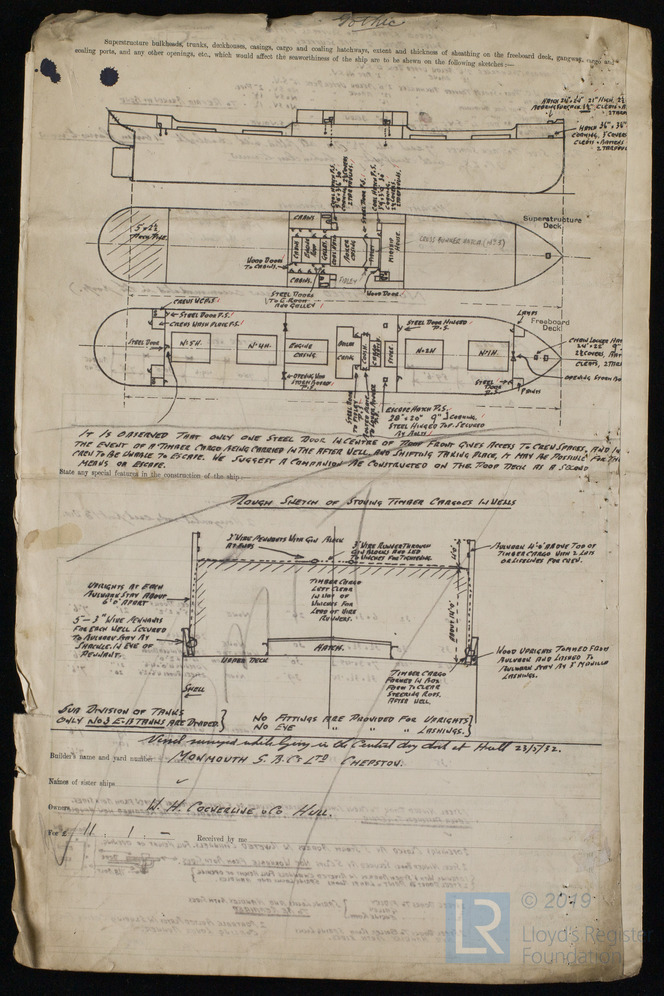 Gothic
Superstructure bulkheads, trunks, deckhouses, casings, cargo and coaling hatchways, extent and thickness of sheathing on the freeboard deck, gangway, cargo and
coaling ports, and any other openings, etc., which would affect the seaworthiness of the ship are to be shown on the following sketches:—
HATCH 24" x 24" 21" HIGH
HATCH 36" x 36"
COAMING, 3 COVERS
CLEATS & BATTENS
2 TARPAULINS
Superstructure
Deck
CROSS BUNKER HATCH (No 3)
CABINS
WOOD DOORS
TO CABINS
FIDLEY
STEEL DOORS
TO E. ROOM
AND GALLEY
WOOD DOOR
CREW W.C. P.S.
STEEL DOOR P.S.
CREWS WASH PLACE P.S.
STEEL DOOR
No 5 H.
No 4 H.
ENGINE
CASING
BOILER
CASING
STEEL DOOR HINGED
P.S.
No 2 H
No 1 H.
LAMPS
Freeboard
Deck
24" x 22" 9"
STEEL
DOOR
P.S.
PAINTS
ESCAPE HATCH P.S.
28" x 20" 9" COAMING.
STEEL HINGED TOP. SECURED
BY BOLTS
IT IS OBSERVED THAT ONLY ONE STEEL DOOR IN CENTRE OF POOP FRONT GIVES ACCESS TO CREW SPACES, AND IN
THE EVENT OF A TIMBER CARGO BEING CARRIED IN THE AFTER WELL, AND SHIFTING TAKING PLACE, IT MAY BE POSSIBLE FOR THE
MEN TO BE UNABLE TO ESCAPE. WE SUGGEST A COMPANION BE CONSTRUCTED ON THE POOP DECK AS A SECOND
MEANS OF ESCAPE.
State any special features in the construction of the ship:—
ROUGH SKETCH OF STOWING TIMBER CARGOES IN WELLS
3" WIRE PENNANTS WITH GIN BLOCK
AT ENDS
3" WIRE RUNNER THROUGH
GIN BLOCKS AND LED
TO WINCHES FOR TIGHTENING.
BULWARK 4'0" ABOVE TOP OF
TIMBER CARGO WITH 2 LOTS
OF LIFELINES FOR CREW.
UPRIGHTS AT EACH
BULWARK STAY ABOUT
6'0" APART
TIMBER CARGO
LEFT CLEAR
IN WAY OF
WINCHES FOR
LEAD OF WIRE
RUNNERS.
5 — 3" WIRE PENNANTS
FOR EACH WELL SECURED
TO BULWARK STAY BY
SHACKLE IN EYE OF
PENNANT.
HATCH.
UPPER DECK
SHELL
WOOD UPRIGHTS TOMMED FROM
BULWARK AND LASHED TO
BULWARK STAY BY 3" MANILLA
LASHINGS.
TIMBER CARGO
FORMED IN BOX
FORM TO CLEAR
STEERING RODS.
AFTER WELL.
SUB DIVISION OF TANKS
ONLY No 3 E.B TANKS ARE DIVIDED.
NO FITTINGS ARE PROVIDED FOR UPRIGHTS
NO EYE " " " LASHINGS.
Vessel surveyed whilst lying in the Central dry dock at Hull 23/5/32.
Builder's name and yard number MONMOUTH S. B. Co LTD CHEPSTOW.
Names of sister ships
Owners W. H. COCKERLINE & Co HULL.
For £ 11 : 1 : —
Received by me
LR
© 2019
Lloyd's Register
Foundation